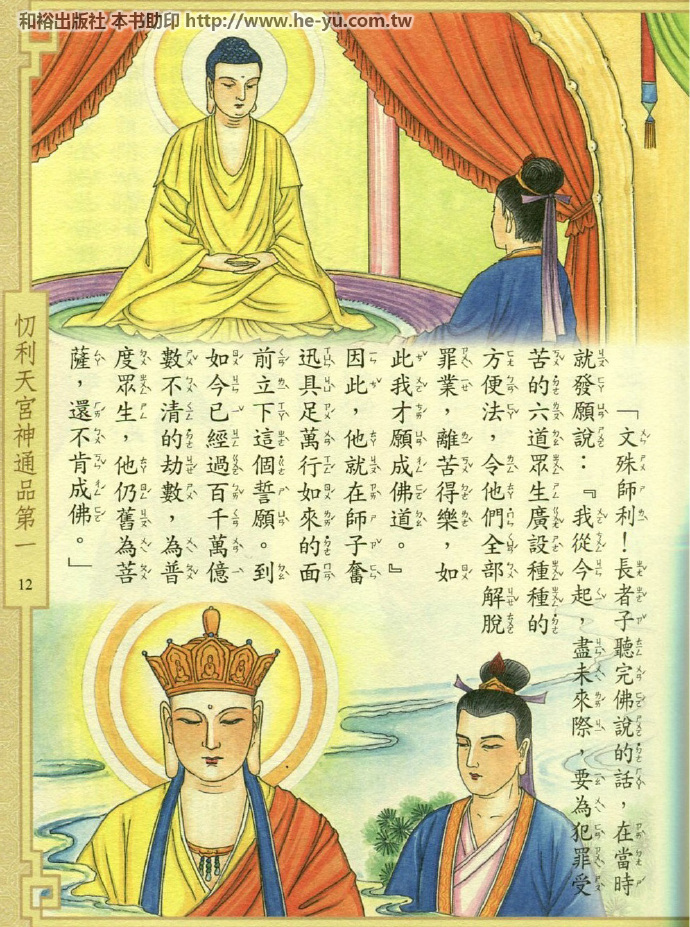 和裕出版社 本书助印 http://www.he-yu.com.tw
「文殊師利！長者子聽完佛說的話，在當時
就發願說：『我從今起，盡未來際，要為犯罪受
苦的六道眾生廣設種種的
方便法，令他們全部解脫
罪業，離苦得樂，如
此我才願成佛道。』
因此，他就在師子奮
迅具足萬行如來的面
前立下這個誓願。到
如今已經過百千萬億
數不清的劫數，為普
度眾生，他仍舊為菩
薩，還不肯成佛。」
忉利天宮神通品第一
12